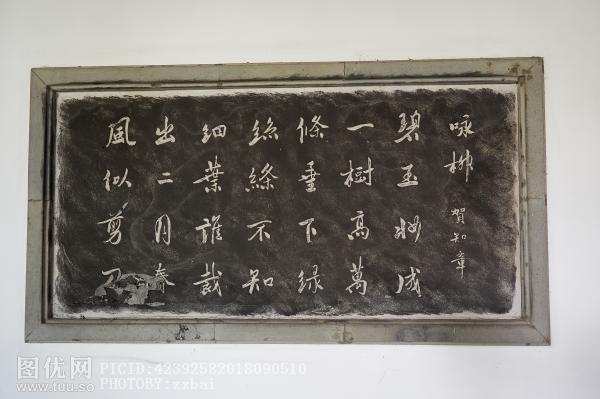 咏柳 賀知章
碧玉妝成
一樹高萬
條垂下绿
絲縧不知
細葉誰裁
出二月春
風似剪刀
图优网
www.tuu.so
PICID:42392582018090510
PHOTOBY:zxbai